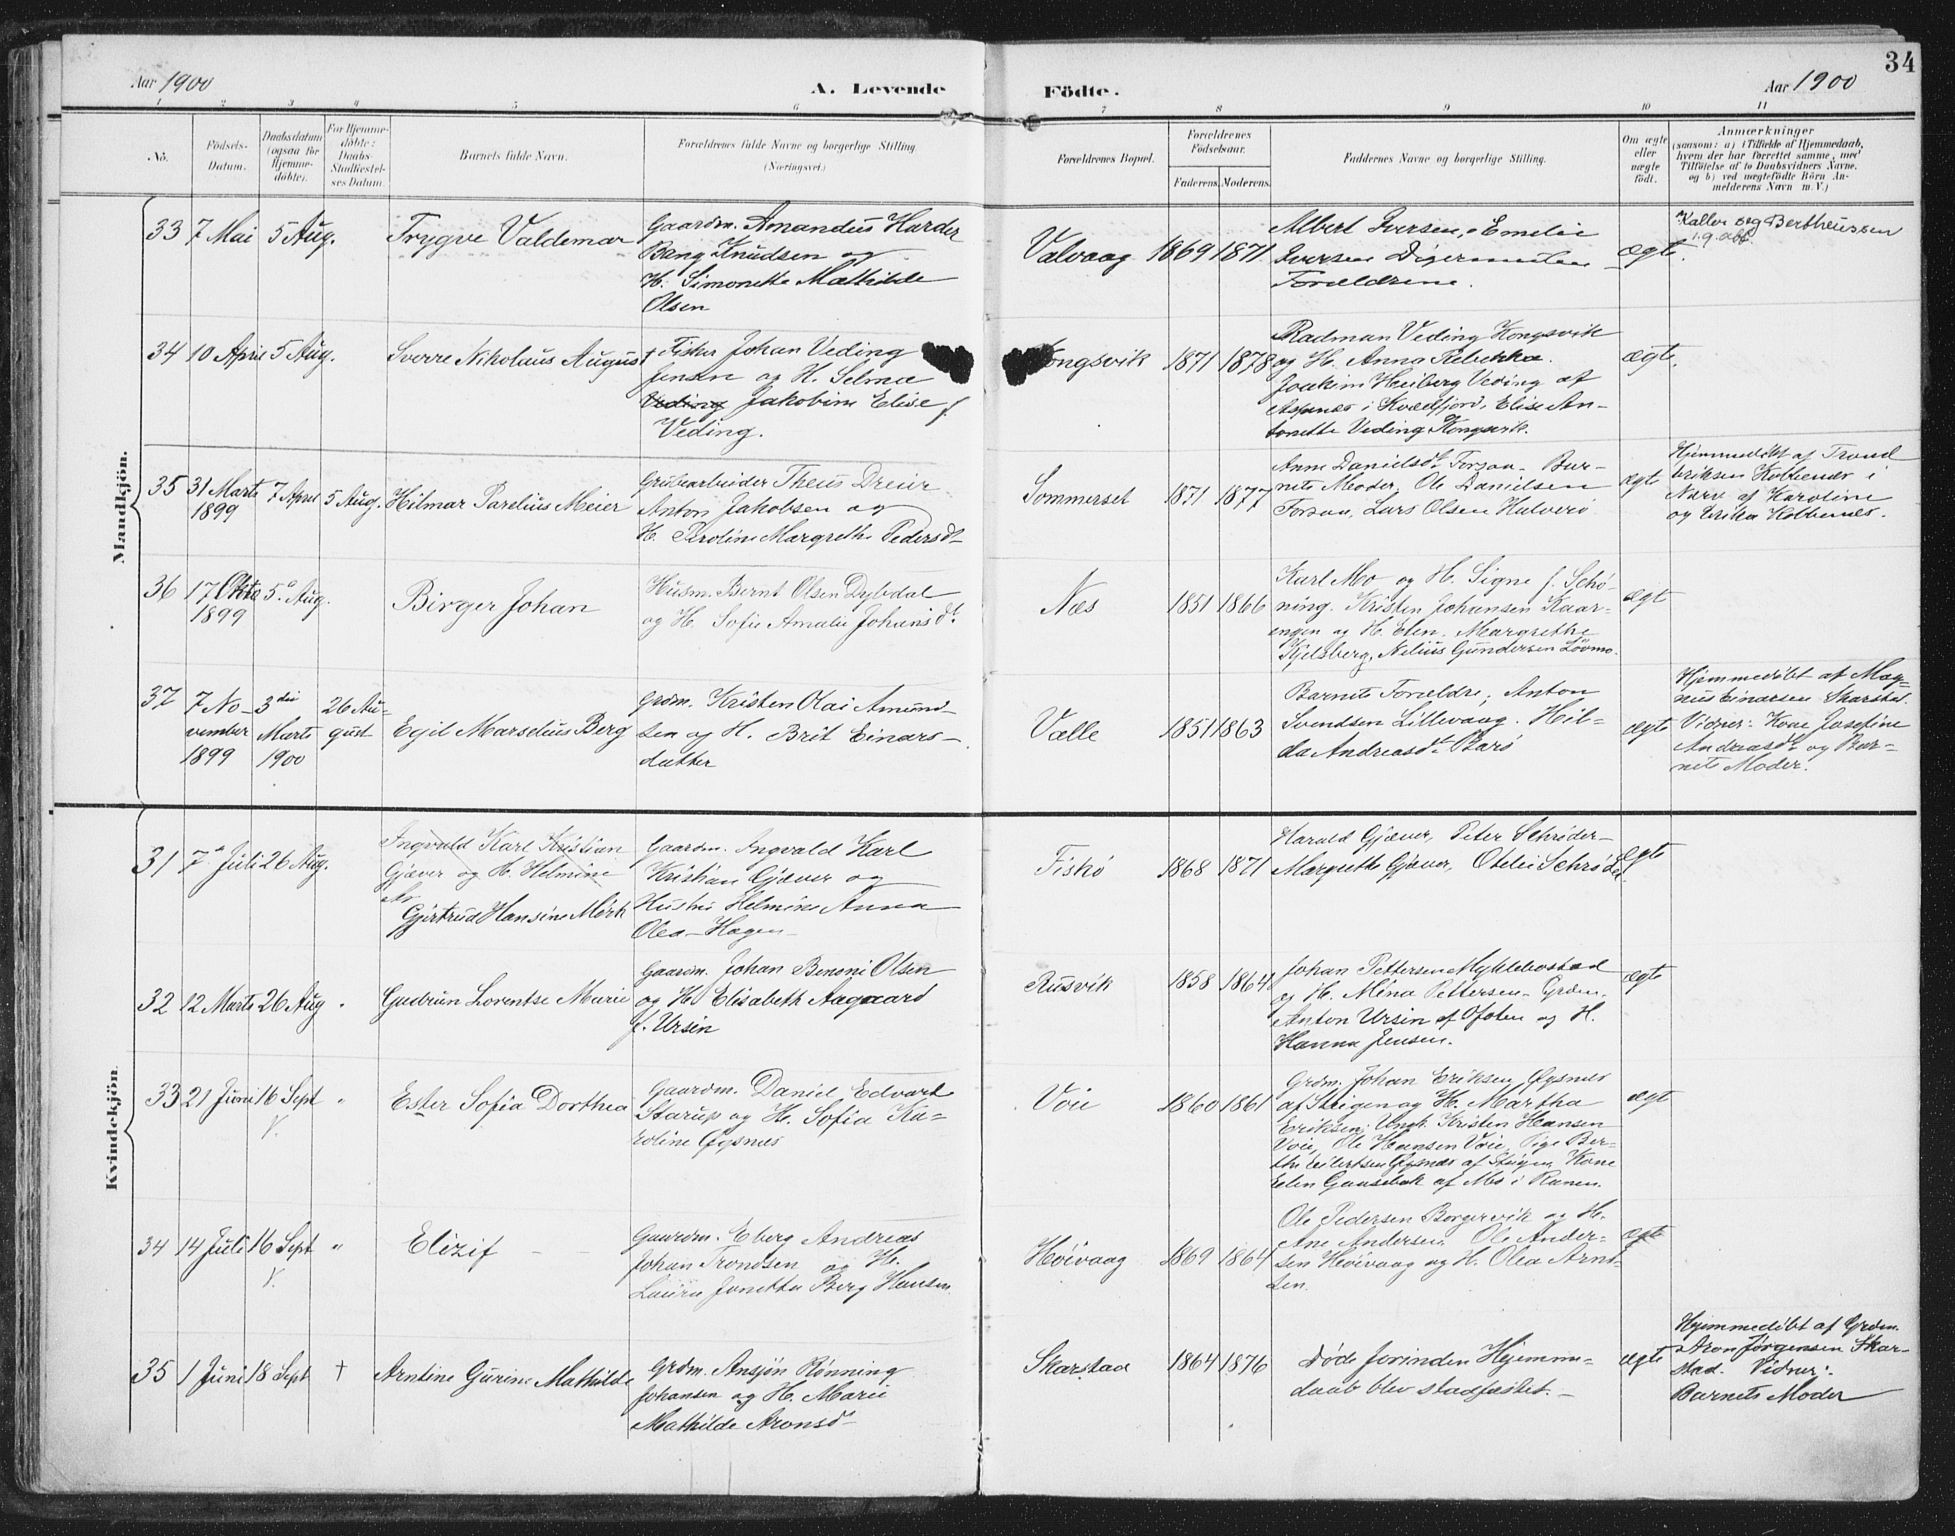 34
Aar 1900
A. Levende
Födte.
Aar 1900
1 2 3 4 5 6 7 8 9 10 11
No.
Födsels-
Datum.
Daabsdatum
(ogsaa for
Hjemme-
döbte).
For Hjemme-
döbte:
Daabs-
Stadfæstel-
ses Datum.
Barnets fulde Navn.
Forældrenes fulde Navne og borgerlige Stilling
(Næringsvei.)
Forældrenes Bopæl.
Forældrenes
Födselsaar.
Faderens. Moderens.
Faddernes Navne og borgerlige Stilling.
Om ægte
eller
uægte
födt.
Anmærkninger
(saasom: a) i Tilfælde af Hjemmedaab,
hvem der har forrettet samme, med
Tilföielse af to Daabsvidners Navne,
og b) ved uægtefödte Börn An-
melderens Navn m. V.)
Mandkjön.
33 7 Mai 5 Aug. Trygve Valdemar
Gaardm. Amandus Harder
Bang Knudsen og
H. Simonette Mathilde
Olsen
Valvaag 1869 1871
Albert Iversen, Emelie
Iversen Digermulen
Forældrene.
ægte.
Kaller seg Bertheussen
34 10 April 5 Aug. Sverre Nikolaus August
Fisker Johan Veding
Jensen og H. Selma
Veding Jakobine Elise f.
Veding.
Kongsvik 1871 1878
Radman Veding Kongsvik
og H. Anna Rebekka.
Joakim Heiberg Veding af
Aspnes i Kvædfjord, Elise An-
tonette Veding Kongsvik.
ægte.
35 31 Marts
1899
7 April 5 Aug. Hilmar Parelius Meier
Grubearbeider Theus Dreier
Anton Jakobsen og
H. Peroline Margrethe Pedersdt
Sommerset 1871 1877
Anne Danielsdt Forsaa. Bar-
nets Moder, Ole Danielsen
Forsaa, Lars Olsen Halverö
ægte
Hjemmedöbt af Trond
Eriksen Kobbenes i
Nærv. af Karoline
og Erika Kobbenes.
36 17 Okto
1899
5 Aug. Birger Johan
Husm. Bernt Olsen Dybdal
og H. Sofie Amalie Johansdt.
Næs 1851 1866
Karl Mo og H. Signe f. Schö-
ning. Kristen Johansen Kaar-
engen og H. Elen. Margrethe
Kjelsberg, Nelius Gundersen Lövmo.
ægt
37 7 No-
vember
1899
3die
Marts
1900
26 Au-
gust
Egil Marselius Berg
Grdm. Kristen Olai Amund-
sen og H. Brit Einars-
datter
Valle 1851 1863
Barnets Forældre, Anton
Svendsen Lillevaag. Hil-
da Andreasdt. Barö
ægte
Hjemmedöbt af Mag-
nus Einarsen Skarstad.
Vidner: Kone Josefine
Andreasdt og Bar-
nets Moder.
Kvindekjön
31 7 Juli 26 Aug.
Ingvald Karl Kristian
Gjæver og H. Helmine
Gjertrud Hansine Mörk
Gaardm. Ingvald Karl
Kristian Gjæver og
Hustru Helmine Anna
Olea Hagen
Fiskö 1868 1871
Harald Gjæver, Peter Schröder
Margrethe Gjæver, Otelie Schröder
ægte
32 12 Marts 26 Aug " Gudrun Lorentse Marie
Gaardm. Johan Benoni Olsen
og H. Elisabeth Aagaard
f. Ursin
Rusvik 1858 1864
Johan Pettersen Myklebostad
og H. Mina Pettersen. Grdm.
Anton Ursin af Ofoten og H.
Hanna Jensen.
ægte
33 21 Juni 16 Sept " Ester Sofia Dorthea
Gaardm. Daniel Edvard
Starup og H. Sofia Ka-
roline Öysnes
Voie 1860 1861
Grdm. Johan Eriksen Öysnes
af Steigen og H. Martha
Eriksen; Ungk. Kristen Hansen
Voie, Ole Hansen Voie, Pige Ber-
the Eilertsen Öysnes af Steigen, Kone
Elen Gaasebak af Mo i Ranen.
ægt
34 14 Juli 16 Sept " Elizif
Gaardm. Eberg Andreas
Johan Trondsen og H.
Laura Janetta Berg Hansen
Höivaag 1869 1864
Ole Pedersen Borgervik og H.
Ane Andersen. Ole Ander-
sen Höivaag og H. Olea Arnt-
sen.
ægte
35 1 Juni 18 Sept † Arntine Gurine Mathilde
Grdm. Ansjön Rönning
Johansen og H. Marie
Mathilde Aronsdt
Skarstad 1864 1876
Döde forinden Hjemme-
daab blev stadfæstet.
ægte
Hjemmedöbt af Grdm.
Aron Jörgensen Skar-
stad. Vidner:
Barnets Moder